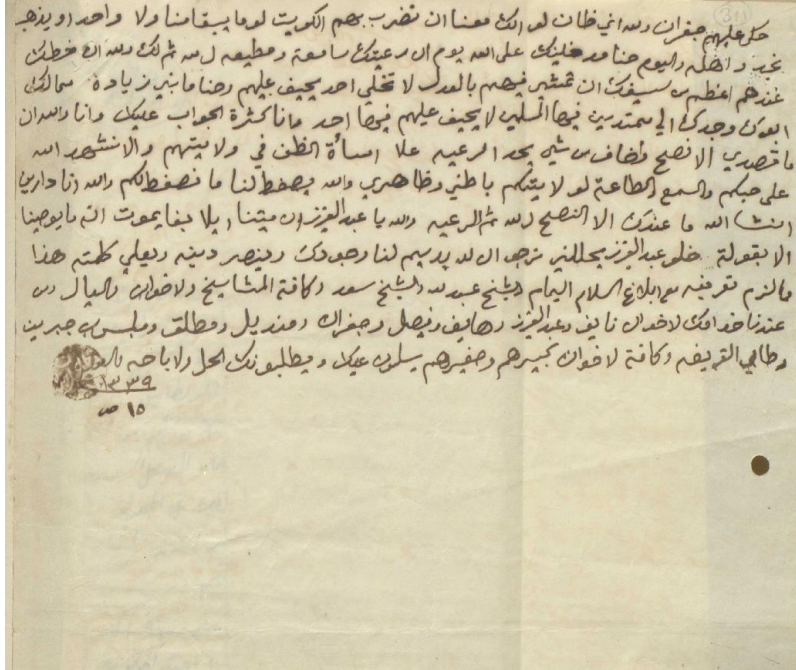 حكي عليهم جفران والله اني ظان لو انك معنا ان تضرب بهم الكويت لو ما يبقا منا ولا واحد او يذهب
نجد واهله واليوم حنا مدخلينك على الله يوم ان رعيتك سامعة ومطيعه لله ثم لك والله ان خطك
عندهم اعظم من سيفك ان تمشي فيهم بالعدل لا تخلي احد يحيف عليهم وحنا ما نبي زيادة
ابوك وجدك الى فيها المسلمين لا يحيف عليهم فيها احد وانا كثرة الجواب عليك وانا والله ان
ما قصدي الا نصح واخاف من شي يحد الرعيه علا اساأة الظن في ولايتهم والا نشهد الله
على حبكم والسمع والطاعة لو لا يتكم باطني وظاهري والله يحفظ لنا ما نصفط لكم والله انا دارين
انشا الله ما عندك الا النصح لله ثم الرعيه والله يا عبد العزيز ان ميتنا لا يموت انه ما يوصينا
الا بقولة خلو عبد العزيز نرجو ان الله يديم لنا وجودك وينصر دينه ويعلي كلمته هذا
مالزم تعريفه مع ابلاغ السلام اليمام والشيخ عبد الله والشيخ سعد وكافة المشايخ ولاخوان والعيال ومن
عندنا خدامك لاخوان نايف وعبد العزيز وهايف وفيصل وجفران ومنديل ومطلق وملبس بن جبرين
وطامي القريفه وكافة لاخوان كبيرهم وصغيرهم يسلمون عليك ويطلبونك الحل ولاباحه
١٣٣٩
١٥ ص